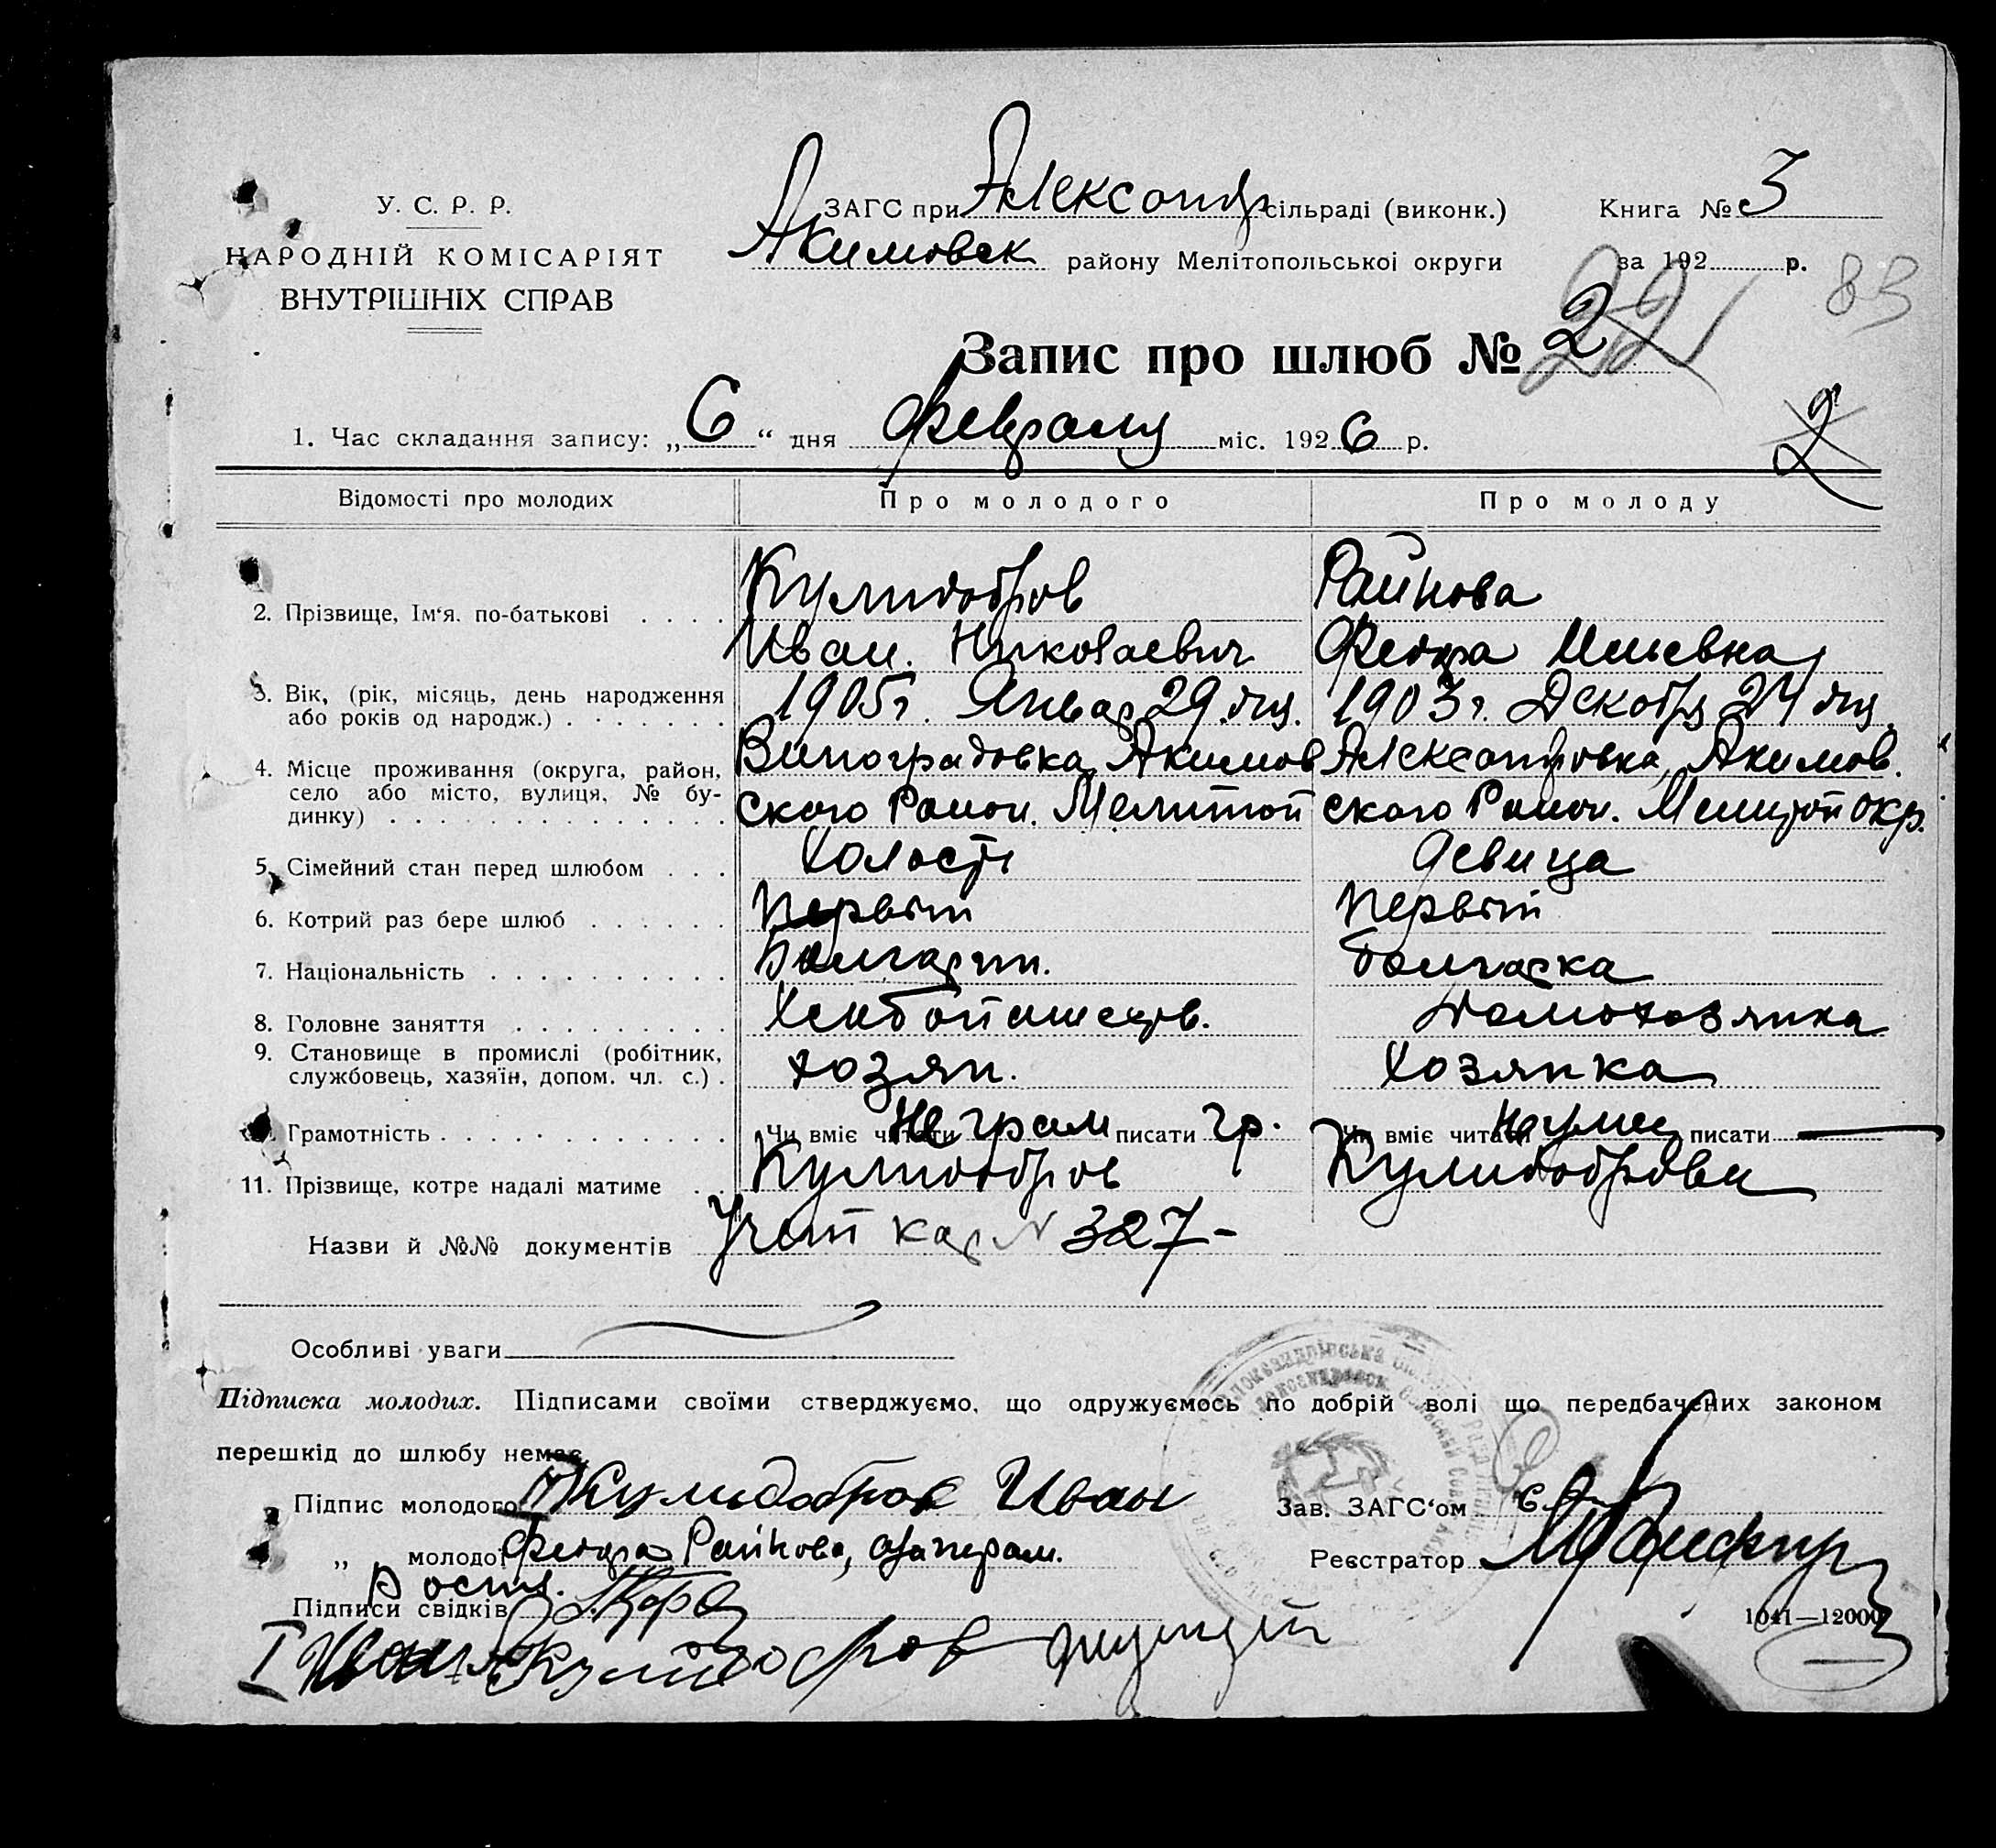 У. С. Р. Р.
НАРОДНІЙ КОМІСАРІЯТ
ВНУТРІШНІХ СПРАВ
ЗАГС при Александр сільраді (виконк.)
Акимовск району Мелітопольської округи
Книга № 3
за 192 р.
83
Запис про шлюб № 2
1. Час складання запису: „6“ дня Февраля міс. 1926 р.
2
Відомості про молодих
Про молодого
Про молоду
2. Прізвище, Ім‘я. по-батькові
Кулидобров
Иван. Николаевич
Райнова
Федора Ильевна
3. Вік, (рік, місяць, день народження
або років од народж.)
1905 г. Январ 29 дня.
1903 г. Декабр 24 дня
4. Місце проживання (округа, район,
село або місто, вулиця, № бу-
динку)
Виноградовка, Акимов
ского Район. Мелитоп
Александровка, Акимов.
ского Район. Мелитоп окр.
5. Сімейний стан перед шлюбом
Холост
девица
6. Котрий раз бере шлюб
Первый
Первый
7. Національність
Болгарин.
болгарка
8. Головне заняття
Хлебопашеств.
Домохозяйка
9. Становище в промислі (робітник,
службовець, хазяїн, допом. чл. с.)
хозяин.
Хозяйка
Грамотність
Чи вміє читати Не грам писати гр.
Чи вміє читати писати —
11. Прізвище, котре надалі матиме
Кулидобров
Кулидоброва
Назви й №№ документів
Учет кар N 327-
Особливі уваги
Підписка молодих. Підписами своїми стверджуємо, що одружуємось по добрій волі що передбачених законом
перешкід до шлюбу немає
Підпис молодого Кулидобров Иван
„ молодої Федора Райнова,
Підписи свідків
Иван Кулидобров
Зав. ЗАГС‘ом
Реєстратор
1041—12000